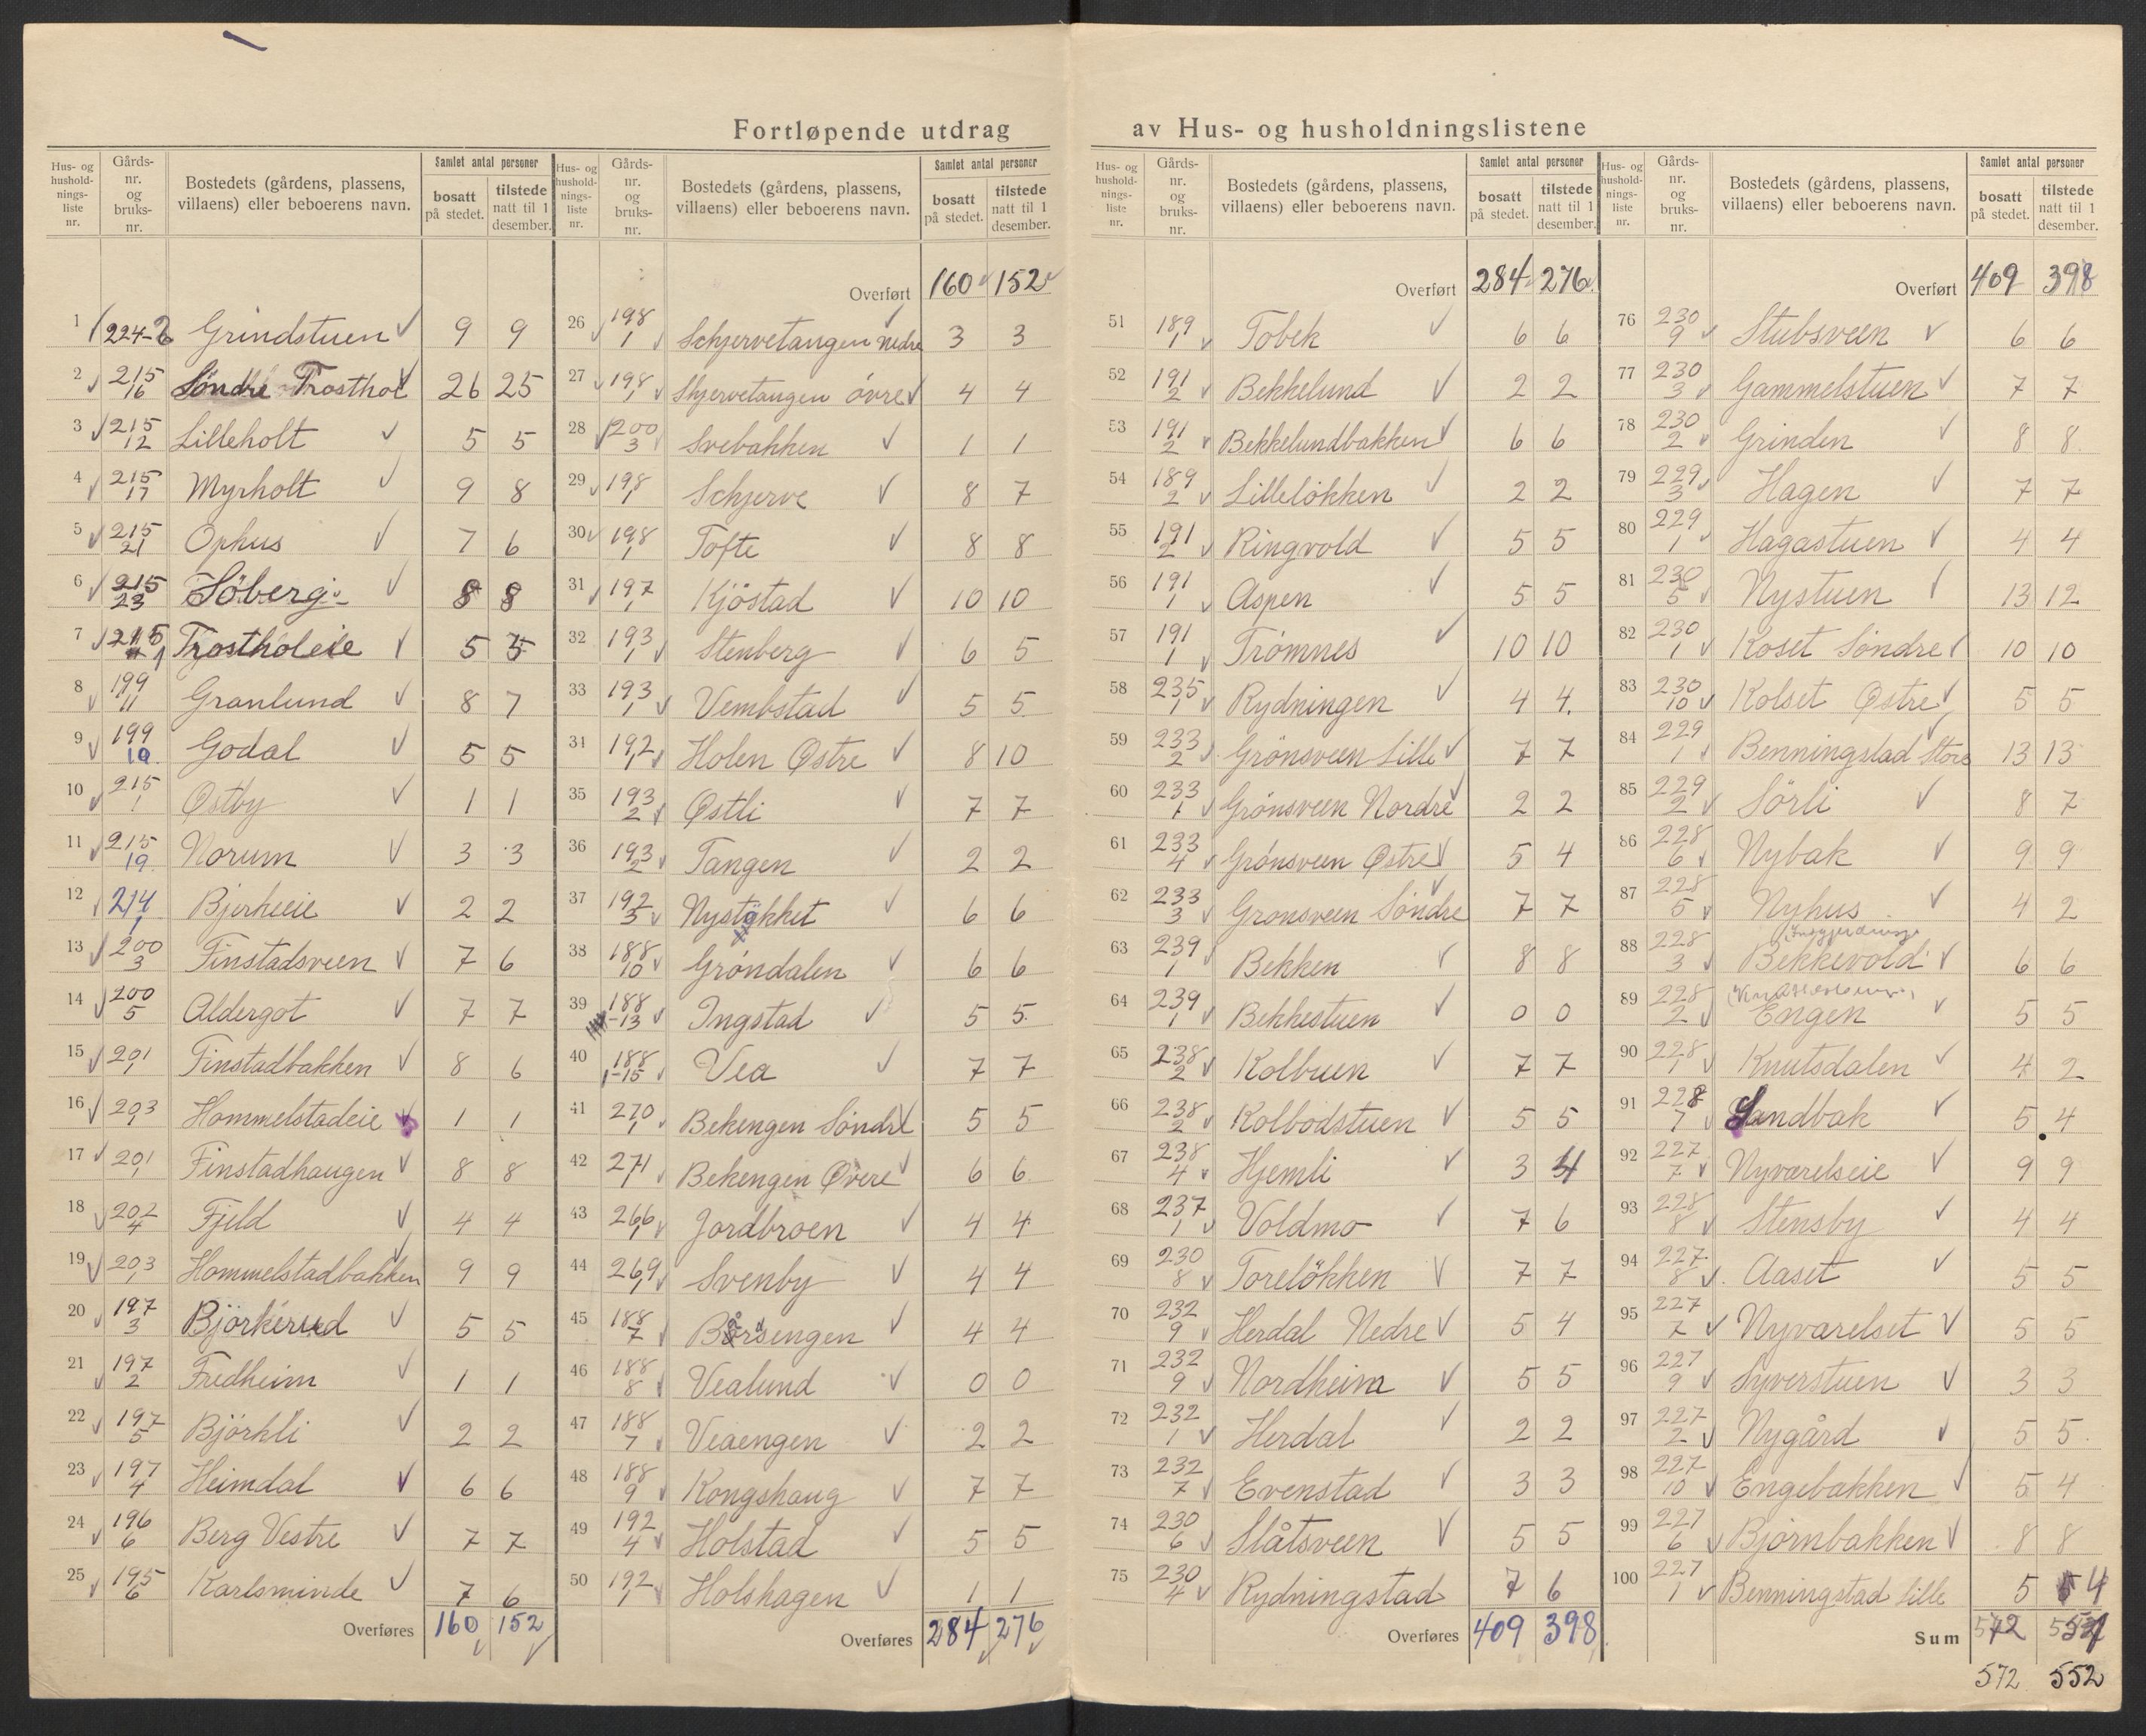 Fortløpende utdrag av Hus- og husholdningslistene
Hus- og hushold- nings- liste nr. | Gårds- nr. og bruks- nr. | Bostedets (gårdens, plassens, villaens) eller beboerens navn. | Samlet antal personer bosatt på stedet. | tilstede natt til 1 desember.
1 224-2 Grindstuen 9 9
2 215/16 Søndre Trosthol 26 25
3 215/12 Lilleholt 5 5
4 215/17 Myrholt 9 8
5 215/21 Ophus 7 6
6 215/23 Söberg 8 8
7 215/1 Trostholeie 5 5
8 199/11 Granlund 8 7
9 199/10 Godal 5 5
10 215/1 Østby 1 1
11 215/19 Norum 3 3
12 214/1 Bjerkeeie 2 2
13 200/3 Finstadsveen 7 6
14 200/5 Aldergot 7 7
15 201/1 Finstadbakken 8 6
16 203/1 Hommelstadeie 1 1
17 201/1 Finstadhaugen 8 8
18 202/4 Fjeld 4 4
19 203/1 Hommelstadbakken 9 9
20 197/3 Björkerud 5 5
21 197/2 Fredheim 1 1
22 197/5 Björkli 2 2
23 197/4 Heimdal 6 6
24 196/6 Berg Vestre 7 7
25 195/6 Karlsminde 7 6
Overføres 160 152
Hus- og hushold- nings- liste nr. | Gårds- nr. og bruks- nr. | Bostedets (gårdens, plassens, villaens) eller beboerens navn. | Samlet antal personer bosatt på stedet. | tilstede natt til 1 desember.
Overført 160 152
26 198/1 Schjervetangen nedre 3 3
27 198/1 Skjervetangen övre 4 4
28 200/3 Svebakken 1 1
29 198/1 Schjerve 8 7
30 198/1 Tofte 8 8
31 197/1 Kjöstad 10 10
32 193/1 Stenberg 6 5
33 193/1 Vembstad 5 5
34 192/1 Holen Østre 8 10
35 193/2 Østli 7 7
36 193/2 Tangen 2 2
37 192/3 Nystökket 6 6
38 188/10 Gröndalen 6 6
39 188-13 Ingstad 5 5
40 188/1-15 Vea 7 7
41 270/1 Bekengen Söndre 5 5
42 271/1 Bekengen Øvre 6 6
43 266/1 Jordbroen 4 4
44 269/1 Svenby 4 4
45 188/7 Bårsengen 4 4
46 188/8 Vealund 0 0
47 188/7 Veaengen 2 2
48 188/9 Kongshaug 7 7
49 192/4 Holstad 5 5
50 192/1 Holshagen 1 1
Overføres 284 276
Hus- og hushold- nings- liste nr. | Gårds- nr. og bruks- nr. | Bostedets (gårdens, plassens, villaens) eller beboerens navn. | Samlet antal personer bosatt på stedet. | tilstede natt til 1 desember.
Overført 284 276
51 189/1 Tobek 6 6
52 191/2 Bekkelund 2 2
53 191/2 Bekkelundbakken 6 6
54 189/2 Lillelökken 2 2
55 191/2 Ringvold 5 5
56 191/1 Aspen 5 5
57 191/1 Trømnes 10 10
58 235/1 Rydningen 4 4
59 233/2 Grönsveen Lille 7 7
60 233/1 Grönsveen Nordre 2 2
61 233/4 Grönsveen Østre 5 4
62 233/3 Grønsveen Söndre 7 7
63 239/1 Bekken 8 8
64 239/1 Bekkestuen 0 0
65 238/2 Kolbuen 7 7
66 238/2 Kolbodstuen 5 5
67 238/4 Hjemli 3 4
68 237/1 Voldmo 7 6
69 230/8 Torelökken 7 7
70 232/9 Herdal Nedre 5 4
71 232/9 Nordheim 5 5
72 232/1 Herdal 2 2
73 232/7 Evenstad 3 3
74 230/6 Slåtsveen 5 5
75 230/4 Rydningstad 7 6
Overføres 409 398
Hus- og hushold- nings- liste nr. | Gårds- nr. og bruks- nr. | Bostedets (gårdens, plassens, villaens) eller beboerens navn. | Samlet antal personer bosatt på stedet. | tilstede natt til 1 desember.
Overført 409 398
76 230/9 Stubsveen 6 6
77 230/3 Gammelstuen 7 7
78 230/2 Grinden 8 8
79 229/3 Hagen 7 7
80 229/1 Hagastuen 4 4
81 230/5 Nystuen 13 12
82 230/1 Koset Söndre 10 10
83 230/10 Kolset Østre 5 5
84 229/1 Benningstad Store 13 13
85 229/2 Sörli 8 7
86 228/6 Nybak 9 9
87 228/5 Nyhus 4 2
88 228/3 Bekkevold 6 6
89 228/2 Engen 5 5
90 228/1 Knutsdalen 4 2
91 228/7 Sandbak 5 4
92 227/7 Nyværelseie 9 9
93 228/8 Stensby 4 4
94 227/8 Aaset 5 5
95 227/7 Nyværelset 5 5
96 227/9 Syverstuen 3 3
97 227/2 Nygård 5 5
98 227/10 Engebakken 5 4
99 227/6 Björnbakken 8 8
100 227/1 Benningstad Lille 5 4
Sum 572
572 552